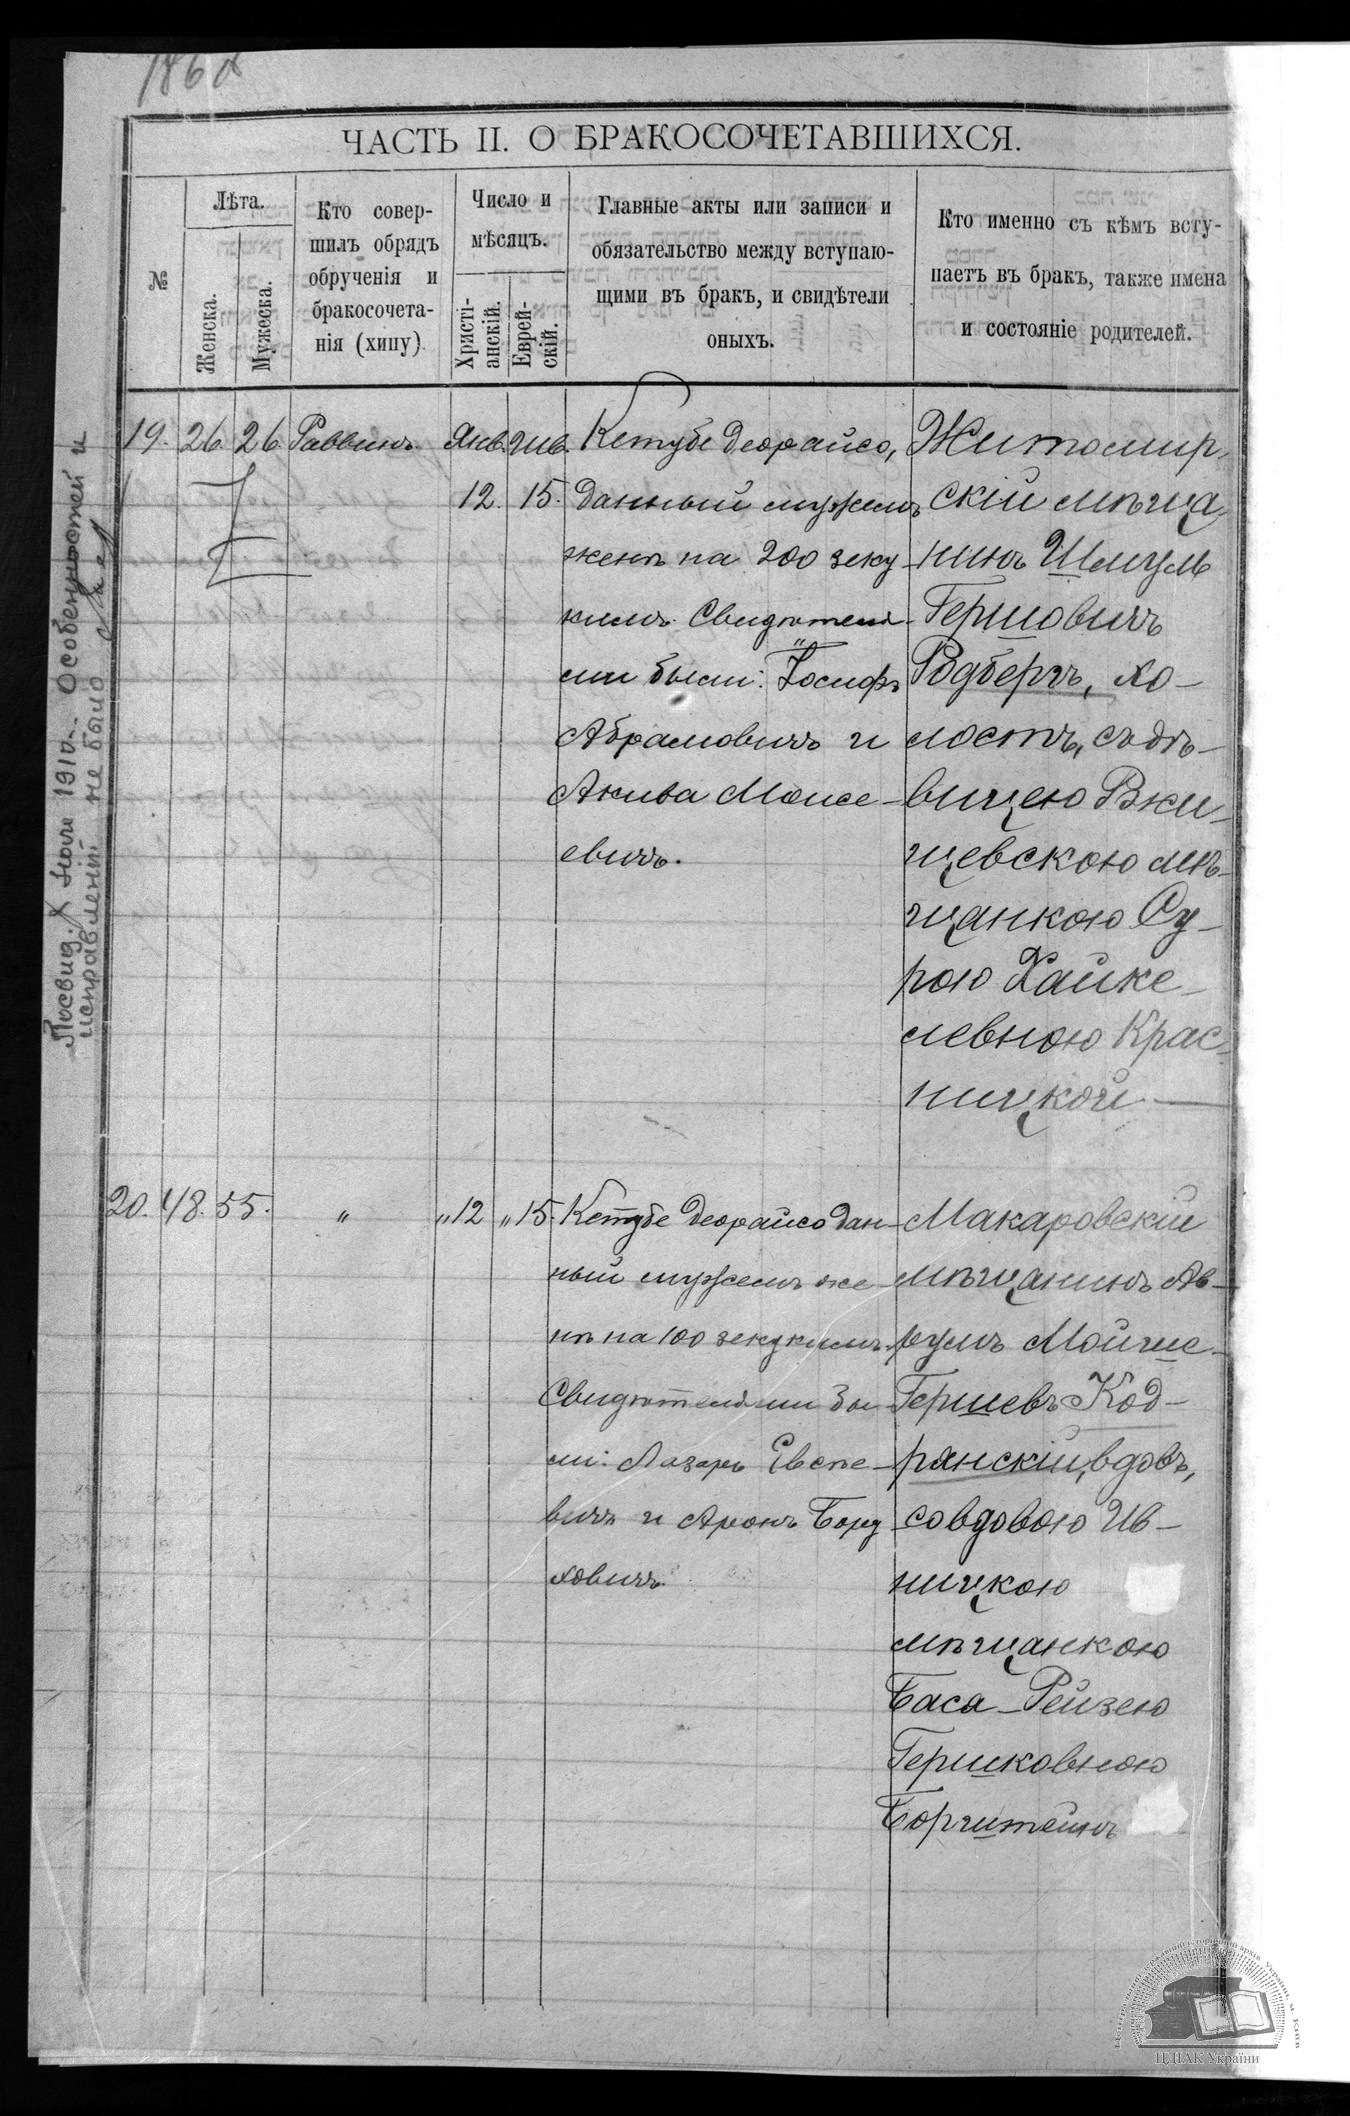 ЧАСТЬ II. О БРАКОСОЧЕТАВШИХСЯ.
№
Лѣта.
Женска.
Мужеска.
Кто совер-
шилъ обрядъ
обрученія и
бракосочета-
нія (хипу)
Число и
мѣсяцъ.
Христі-
анскій.
Еврей-
скій.
Главные акты или записи и
обязательство между вступаю-
щими въ бракъ, и свидѣтели
оныхъ.
Кто именно съ кѣмъ всту-
паетъ въ бракъ, также имена
и состояніе родителей.
19. 26. 26. Раввинъ Янв. Шв.
12. 15.
Кетубе деорайсо,
данный мужемъ
женѣ на 200 зеку-
кимъ. Свидѣтеля-
ми были: Іосифъ
Абрамовичъ и
Акива Моисе-
евичъ.
Житомир-
скій мѣща-
нинъ Шмуль
Гершовичъ
Родбергъ, хо-
лостъ, съ дѣ-
вицею
щевскою мѣ-
щанкою Су-
рою Хайке-
левною Крас-
ницкой
20. 48. 55. " " 12 " 15.
Кетубе деорайсо дан-
ный мужемъ же-
нѣ на 100 зекукимъ.
Свидѣтелями бы-
ли: Лазарь
вичъ и Аронъ Бору-
ховичъ.
Макаровскій
мѣщанинъ Ав-
румъ Мойше-
Гершевъ Код-
рянскій, вдовъ,
со вдовою Ив-
ницкою
мѣщанкою
Баса-Рейзею
Гершковною
Борштейнъ
Особенностей и
исправленій не было
ЦДІАК України